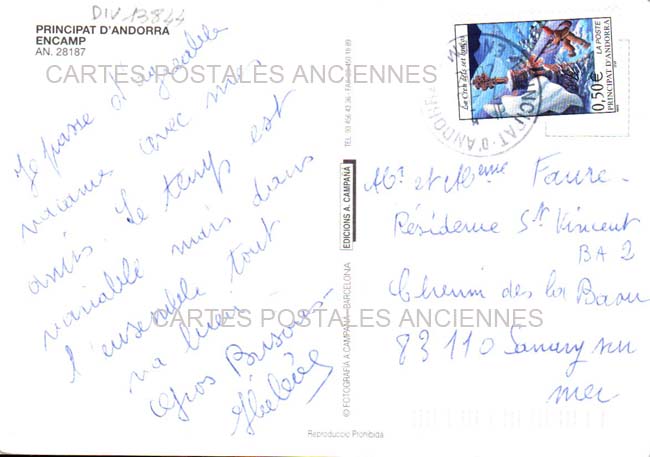 DIV 13844
PRINCIPAT D'ANDORRA
ENCAMP
AN. 28187
CARTES POSTALES ANCIENNES
Je passe d'agréable
vacance avec mes
amis. Le temps est
variable mais dans
l'ensemble tout
va bien.
Gros Bisous
EDICIONS A. CAMPAÑÁ
© FOTOGRAFIA A CAMPAÑÁ - BARCELONA
LA POSTE
PRINCIPAT D'ANDORRA
0,50€
Mr et Mme Faure
Résidence St Vincent
BA 2
Chemin des la Baou
83110 Sanary sur
mer
CARTES POSTALES ANCIENNES
Reproducció Prohibida